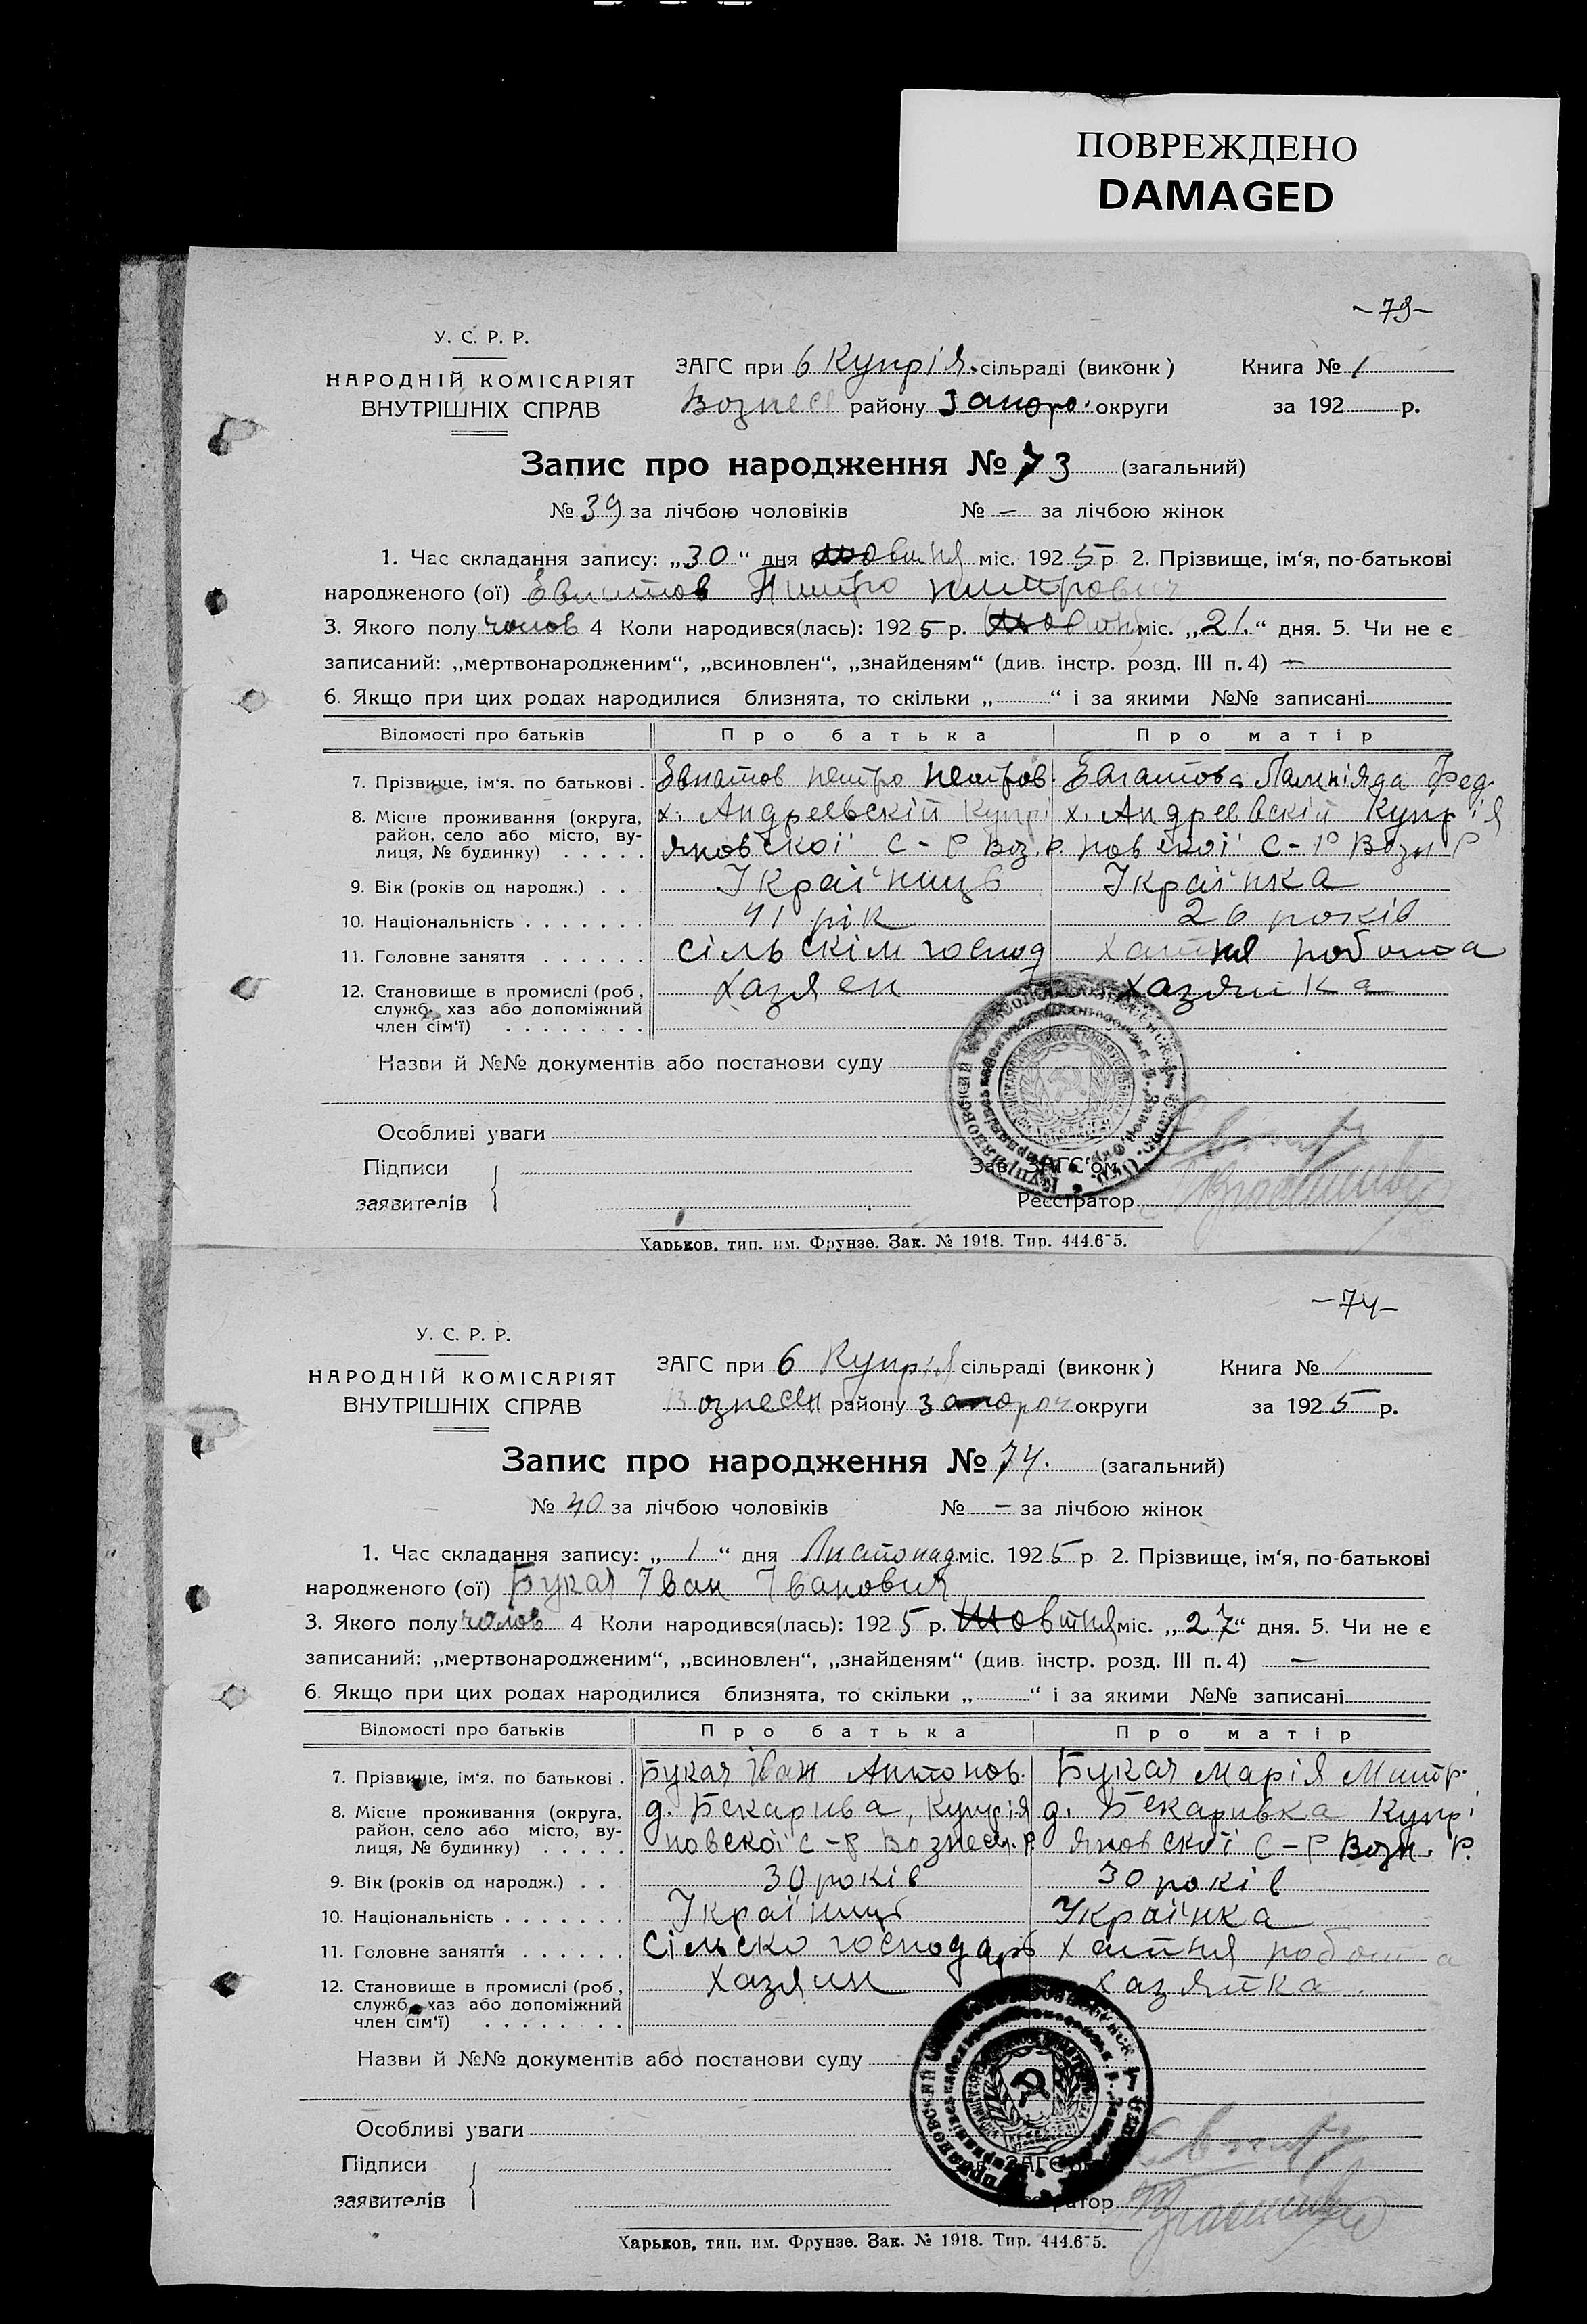 ПОВРЕЖДЕНО
DAMAGED
-79-
У. С. Р. Р.
НАРОДНІЙ КОМІСАРІЯТ
ВНУТРІШНІХ СПРАВ
ЗАГС при б Купрія. сільраді (виконк) Книга № 1
Вознесе району Запоро. округи за 192 р.
Запис про народження № 73 (загальний)
№ 39 за лічбою чоловіків № — за лічбою жінок
1. Час складання запису: „30“ дня міс. 1925 р 2. Прізвище, ім‘я, по-батькові
народженого (ої)
3. Якого полу чолов 4 Коли народився(лась): 1925 р. міс. „21.“ дня. 5. Чи не є
записаний: „мертвонародженим“, „всиновлен“, „знайденям“ (див. інстр. розд. III п. 4) —
6. Якщо при цих родах народилися близнята, то скільки „ “ і за якими №№ записані
Відомості про батьків Про батька Про матір
7. Прізвище, ім‘я, по батькові . петро петров.  Фед.
8. Місце проживання (округа, х. Андреевскій Купрі х. Андреевскій Купр'ія
район, село або місто, ву- яновскої С-Р Воз. Р. новскої С-Р Возн Р
лиця, № будинку) . . . . .
9. Вік (років од народж.) . . Українць Українка
10. Національність . . . . . . . 41 рік 26 років
11. Головне заняття . . . . . . сільскім господ хатня робота
12. Становище в промислі (роб, Хазяен хазяйка
служб, хаз або допоміжний
член сім‘ї) . . . . . . . .
Назви й №№ документів або постанови суду
Особливі уваги
Підписи Зав. ЗАГС‘ом
заявителів Реєстратор
Харьков, тип. им. Фрунзе. Зак. № 1918. Тир. 444.675.
-74-
У. С. Р. Р.
НАРОДНІЙ КОМІСАРІЯТ
ВНУТРІШНІХ СПРАВ
ЗАГС при б Купрія сільраді (виконк) Книга № 1
Вознесен району Запорож округи за 1925 р.
Запис про народження № 74. (загальний)
№ 40 за лічбою чоловіків № — за лічбою жінок
1. Час складання запису: „1“ дня Листопад міс. 1925 р 2. Прізвище, ім‘я, по-батькові
народженого (ої) Букач Іван Іванович
3. Якого полу чолов 4 Коли народився(лась): 1925 р. Жовтня міс. „27“ дня. 5. Чи не є
записаний: „мертвонародженим“, „всиновлен“, „знайденям“ (див. інстр. розд. III п. 4) —
6. Якщо при цих родах народилися близнята, то скільки „ “ і за якими №№ записані
Відомості про батьків Про батька Про матір
7. Прізвище, ім‘я, по батькові . Букач Іван Антонов. Букач Марія Митр.
8. Місце проживання (округа, д. Бекарива, Купрія д. Бекаривка Купрі
район, село або місто, ву- новскої С-Р Вознесн. Р яновскої С-Р Возн. Р.
лиця, № будинку) . . . . .
9. Вік (років од народж.) . . 30 років 30 років
10. Національність . . . . . . . Українць Українка
11. Головне заняття . . . . . . Сільско господарь хатня робота
12. Становище в промислі (роб, хазяин хазяйка.
служб, хаз або допоміжний
член сім‘ї) . . . . . . . .
Назви й №№ документів або постанови суду
Особливі уваги
Підписи ЗАГС‘ом
заявителів Реєстратор
Харьков, тип. им. Фрунзе. Зак. № 1918. Тир. 444.675.